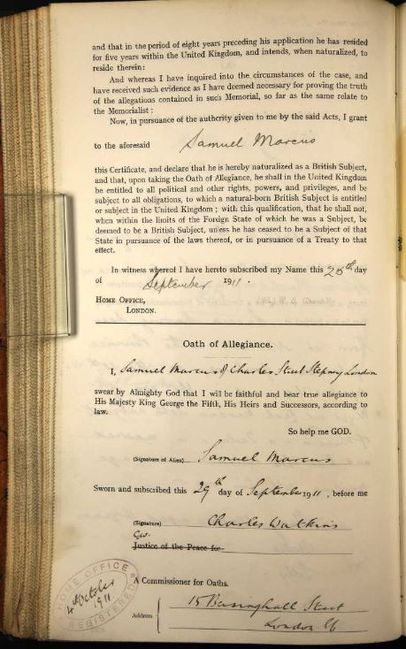 and that in the period of eight years preceding his application he has resided
for five years within the United Kingdom, and intends, when naturalized, to
reside therein:
And whereas I have inquired into the circumstances of the case, and
have received such evidence as I have deemed necessary for proving the truth
of the allegations contained in such Memorial, so far as the same relate to
the Memorialist:
Now, in pursuance of the authority given to me by the said Acts, I grant
to the aforesaid Samuel Marcus
this Certificate, and declare that he is hereby naturalized as a British Subject,
and that, upon taking the Oath of Allegiance, he shall in the United Kingdom
be entitled to all political and other rights, powers, and privileges, and be
subject to all obligations, to which a natural-born British Subject is entitled
or subject in the United Kingdom; with this qualification, that he shall not,
when within the limits of the Foreign State of which he was a Subject, be
deemed to be a British Subject, unless he has ceased to be a Subject of that
State in pursuance of the laws thereof, or in pursuance of a Treaty to that
effect.
In witness whereof I have hereto subscribed my Name this 25th day
of September 1911.
HOME OFFICE,
LONDON.
Oath of Allegiance.
I, Samuel Marcus of Charles Street Stepney London
swear by Almighty God that I will be faithful and bear true allegiance to
His Majesty King George the Fifth, His Heirs and Successors, according to
law.
So help me GOD.
(Signature of Alien) Samuel Marcus
Sworn and subscribed this 29th day of September 1911, before me
(Signature) Charles Watkins
Justice of the Peace for
A Commissioner for Oaths.
Address 15 Basinghall Street
London
HOME OFFICE
4th October
1911
REGISTERED